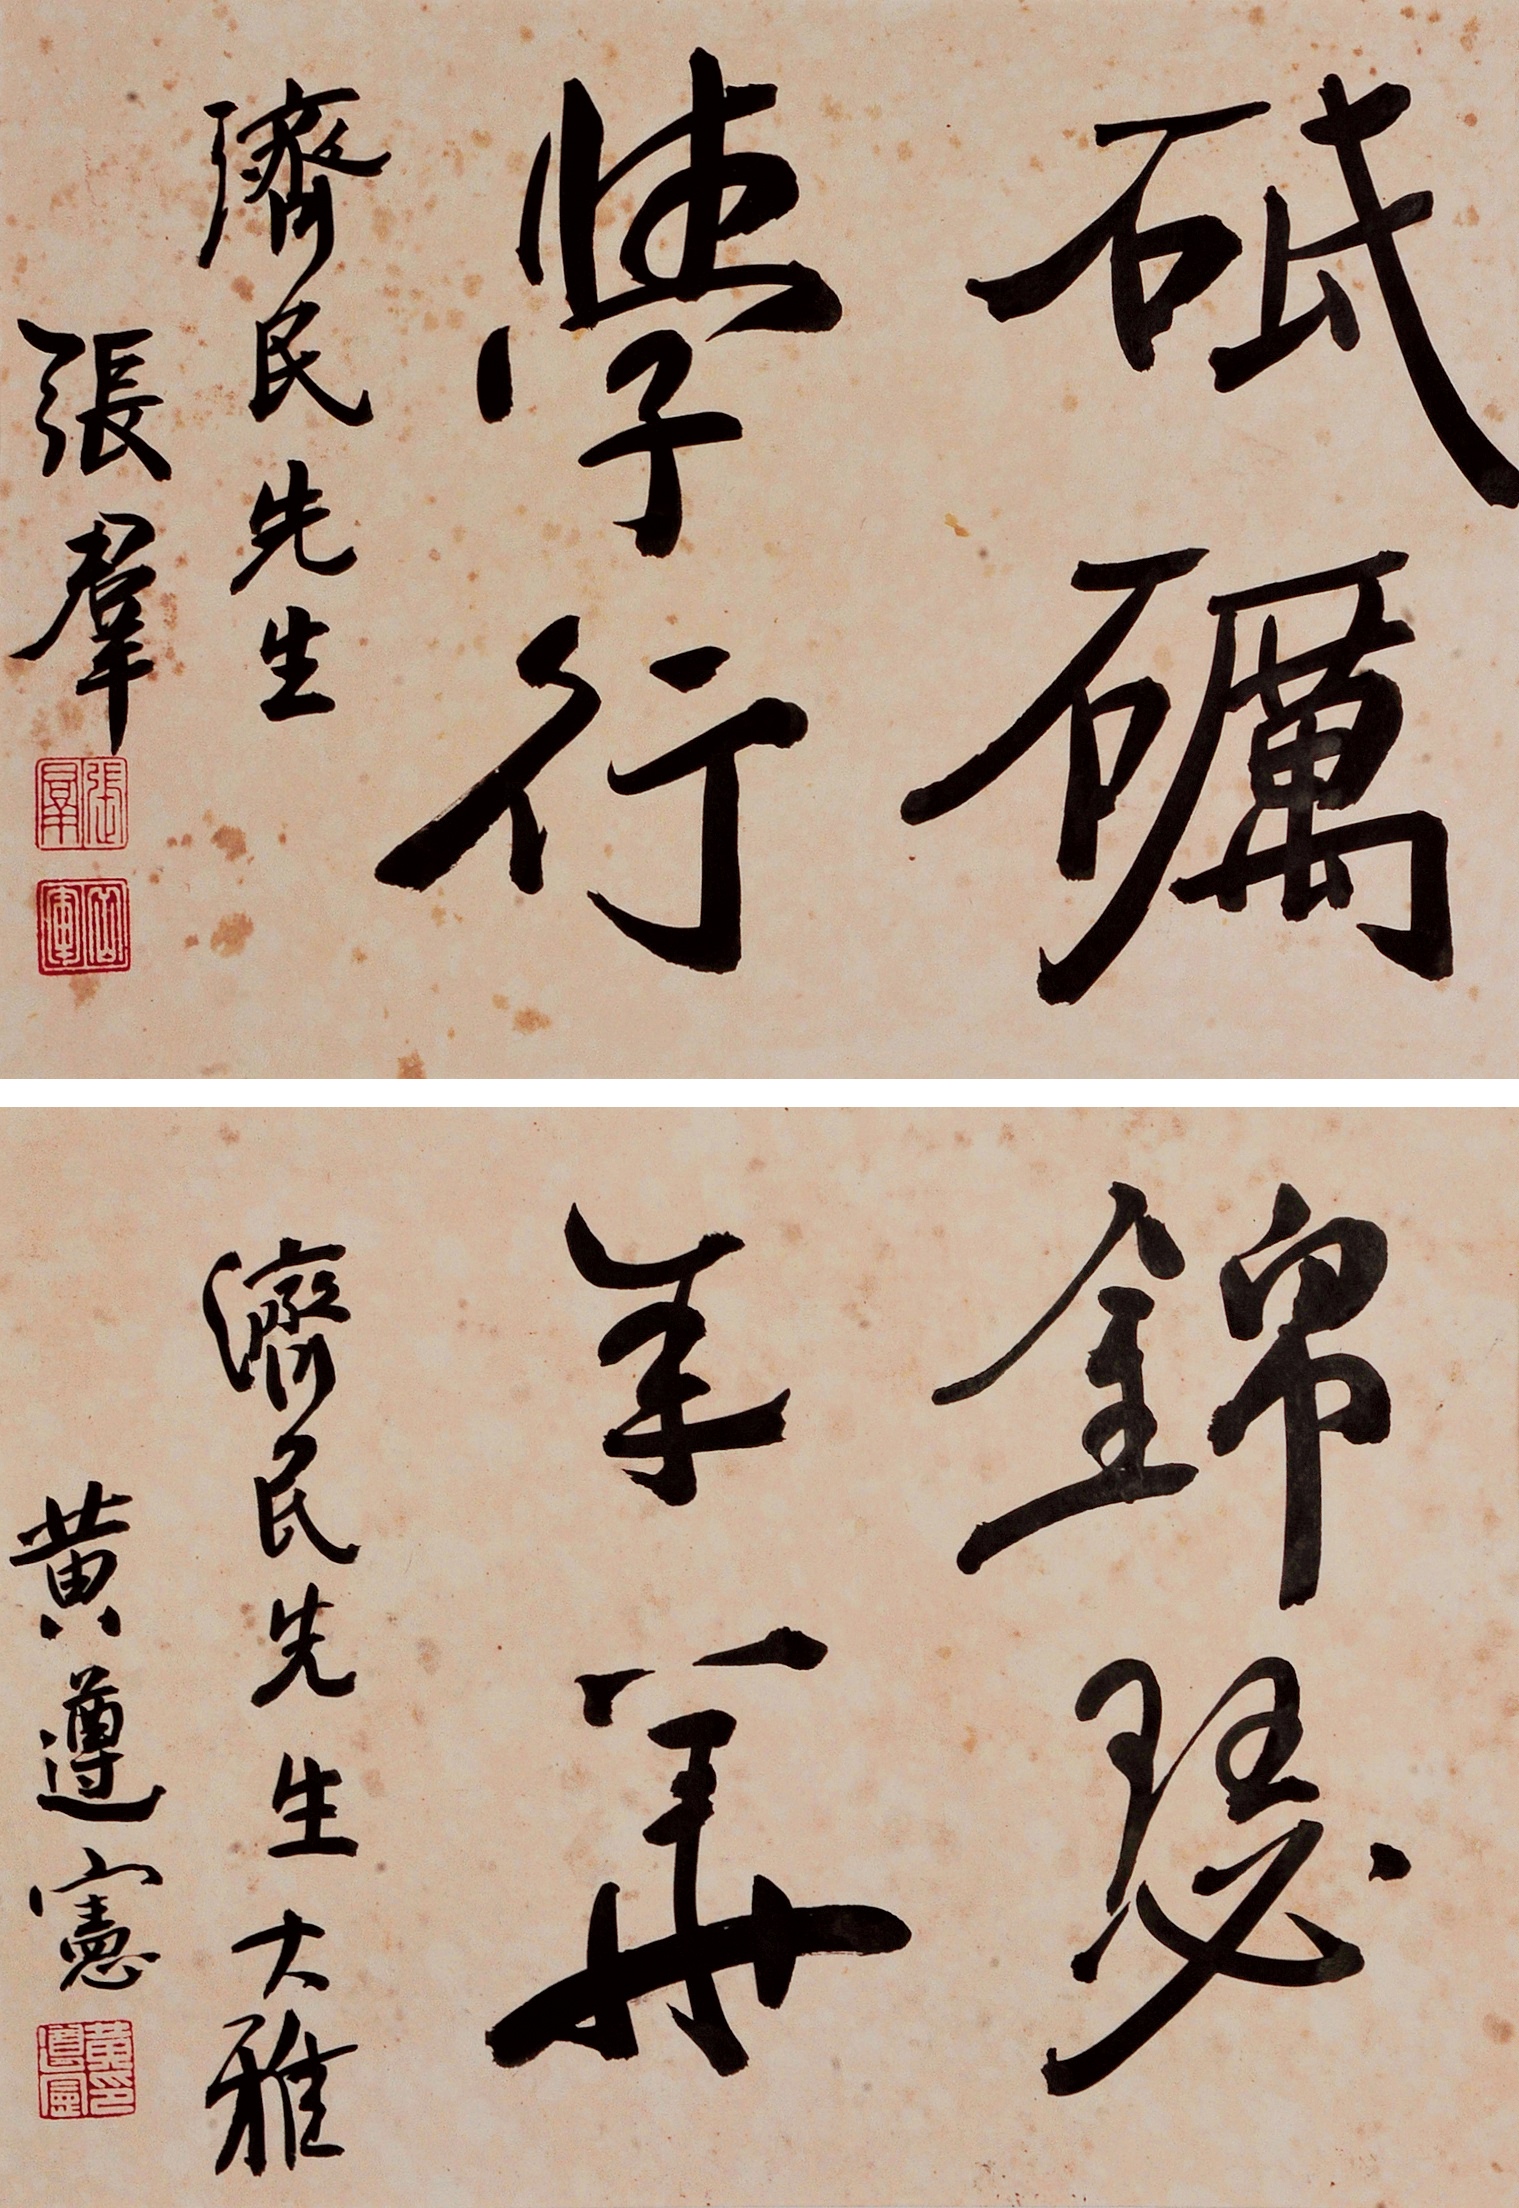 砥礪
學行
濟民先生
張羣
張羣
岳軍
錦瑟
年華
濟民先生大雅
黃遵憲
黃遵憲印